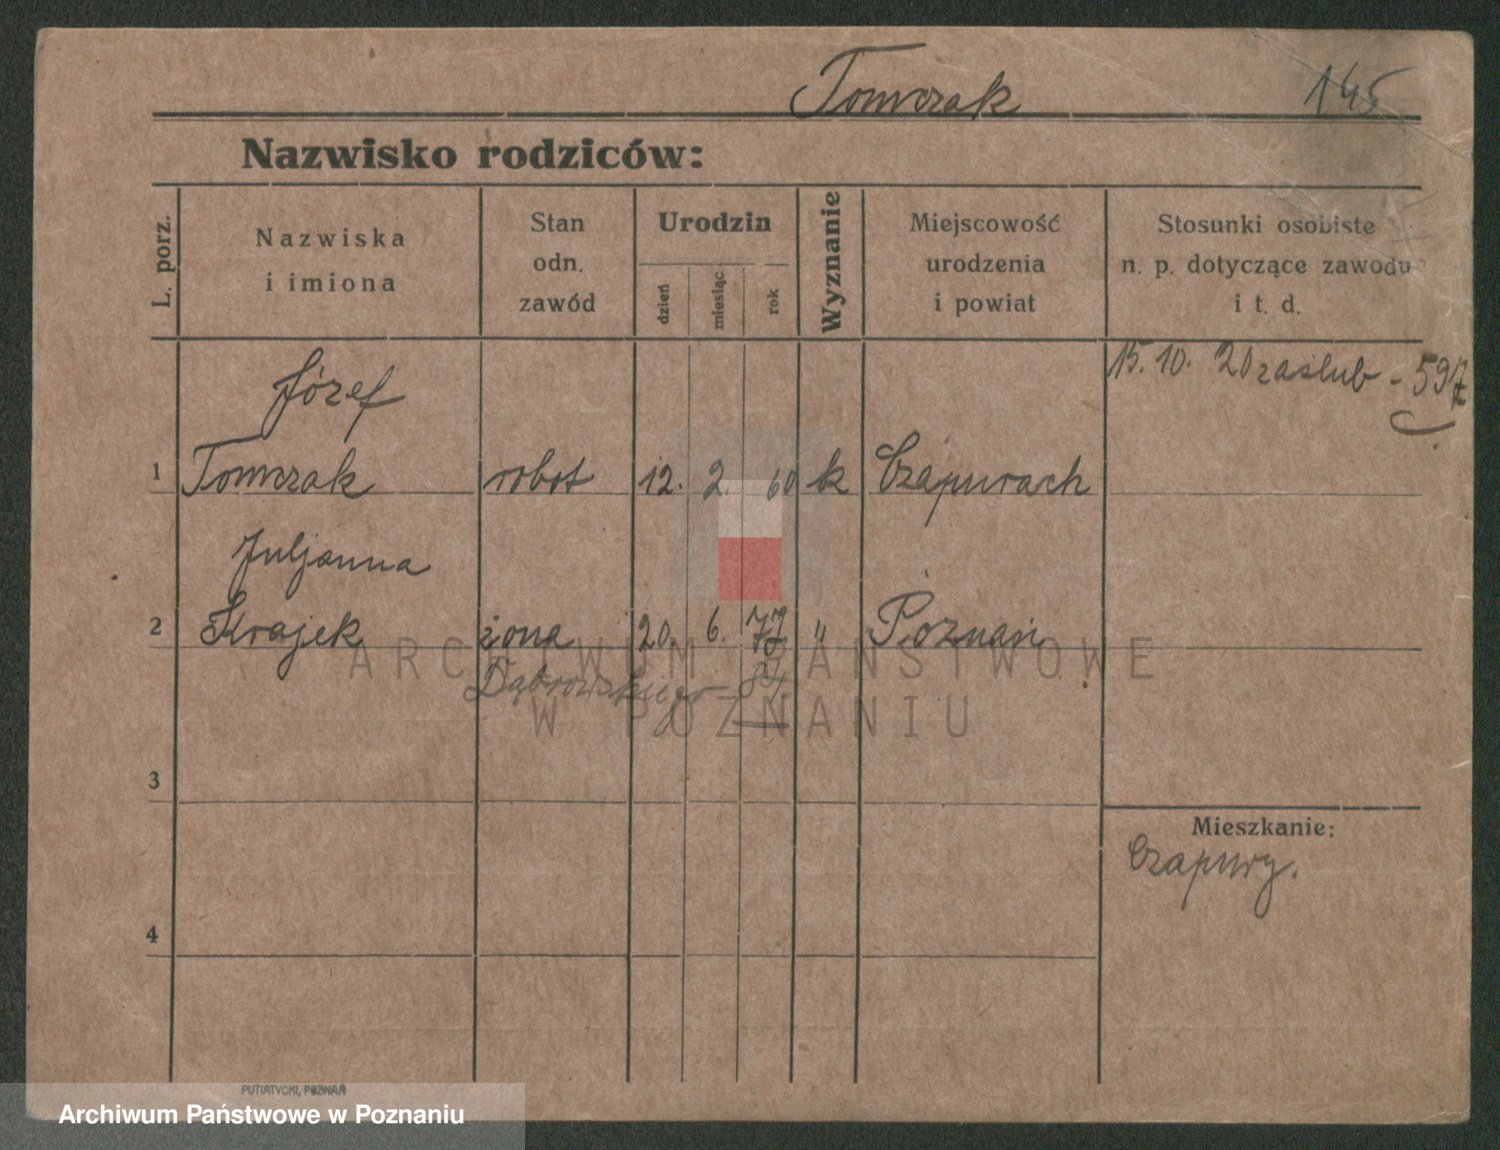 Tomczak 145
Nazwisko rodziców:
L. porz.
Nazwiska
i imiona
Stan
odn.
zawód
Urodzin
dzień
miesiąc
rok
Wyznanie
Miejscowość
urodzenia
i powiat
Stosunki osobiste
n. p. dotyczące zawodu
i t. d.
15. 10. 20 zaślub - 597
Józef
1 Tomczak robot 12. 2. 60 k Czapurach
Juljanna
2 Krajek żona 20. 6. 77 " Poznań
Dąbrowskiego 84.
ARCHIWUM PAŃSTWOWE
W POZNANIU
3
Mieszkanie:
Czapury.
4
PUTIATYCKI, POZNAŃ
Archiwum Państwowe w Poznaniu